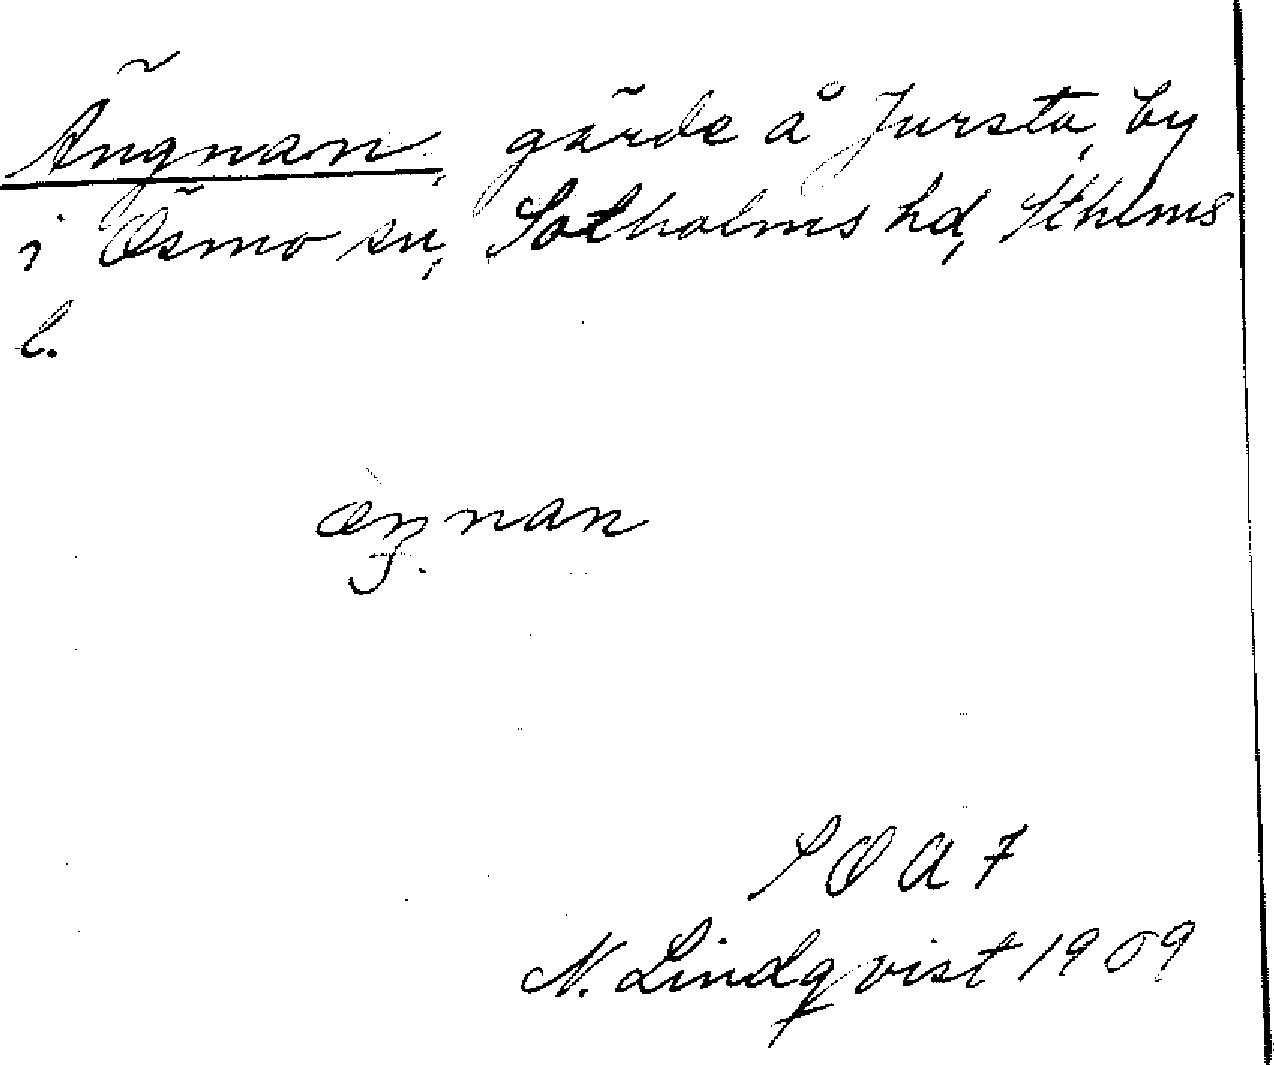 Ängnan, gärde å Jursta, by
i Ösmo sn, Sotholms hd, Sthlms
l.
SOAF
N. Lindqvist 1909